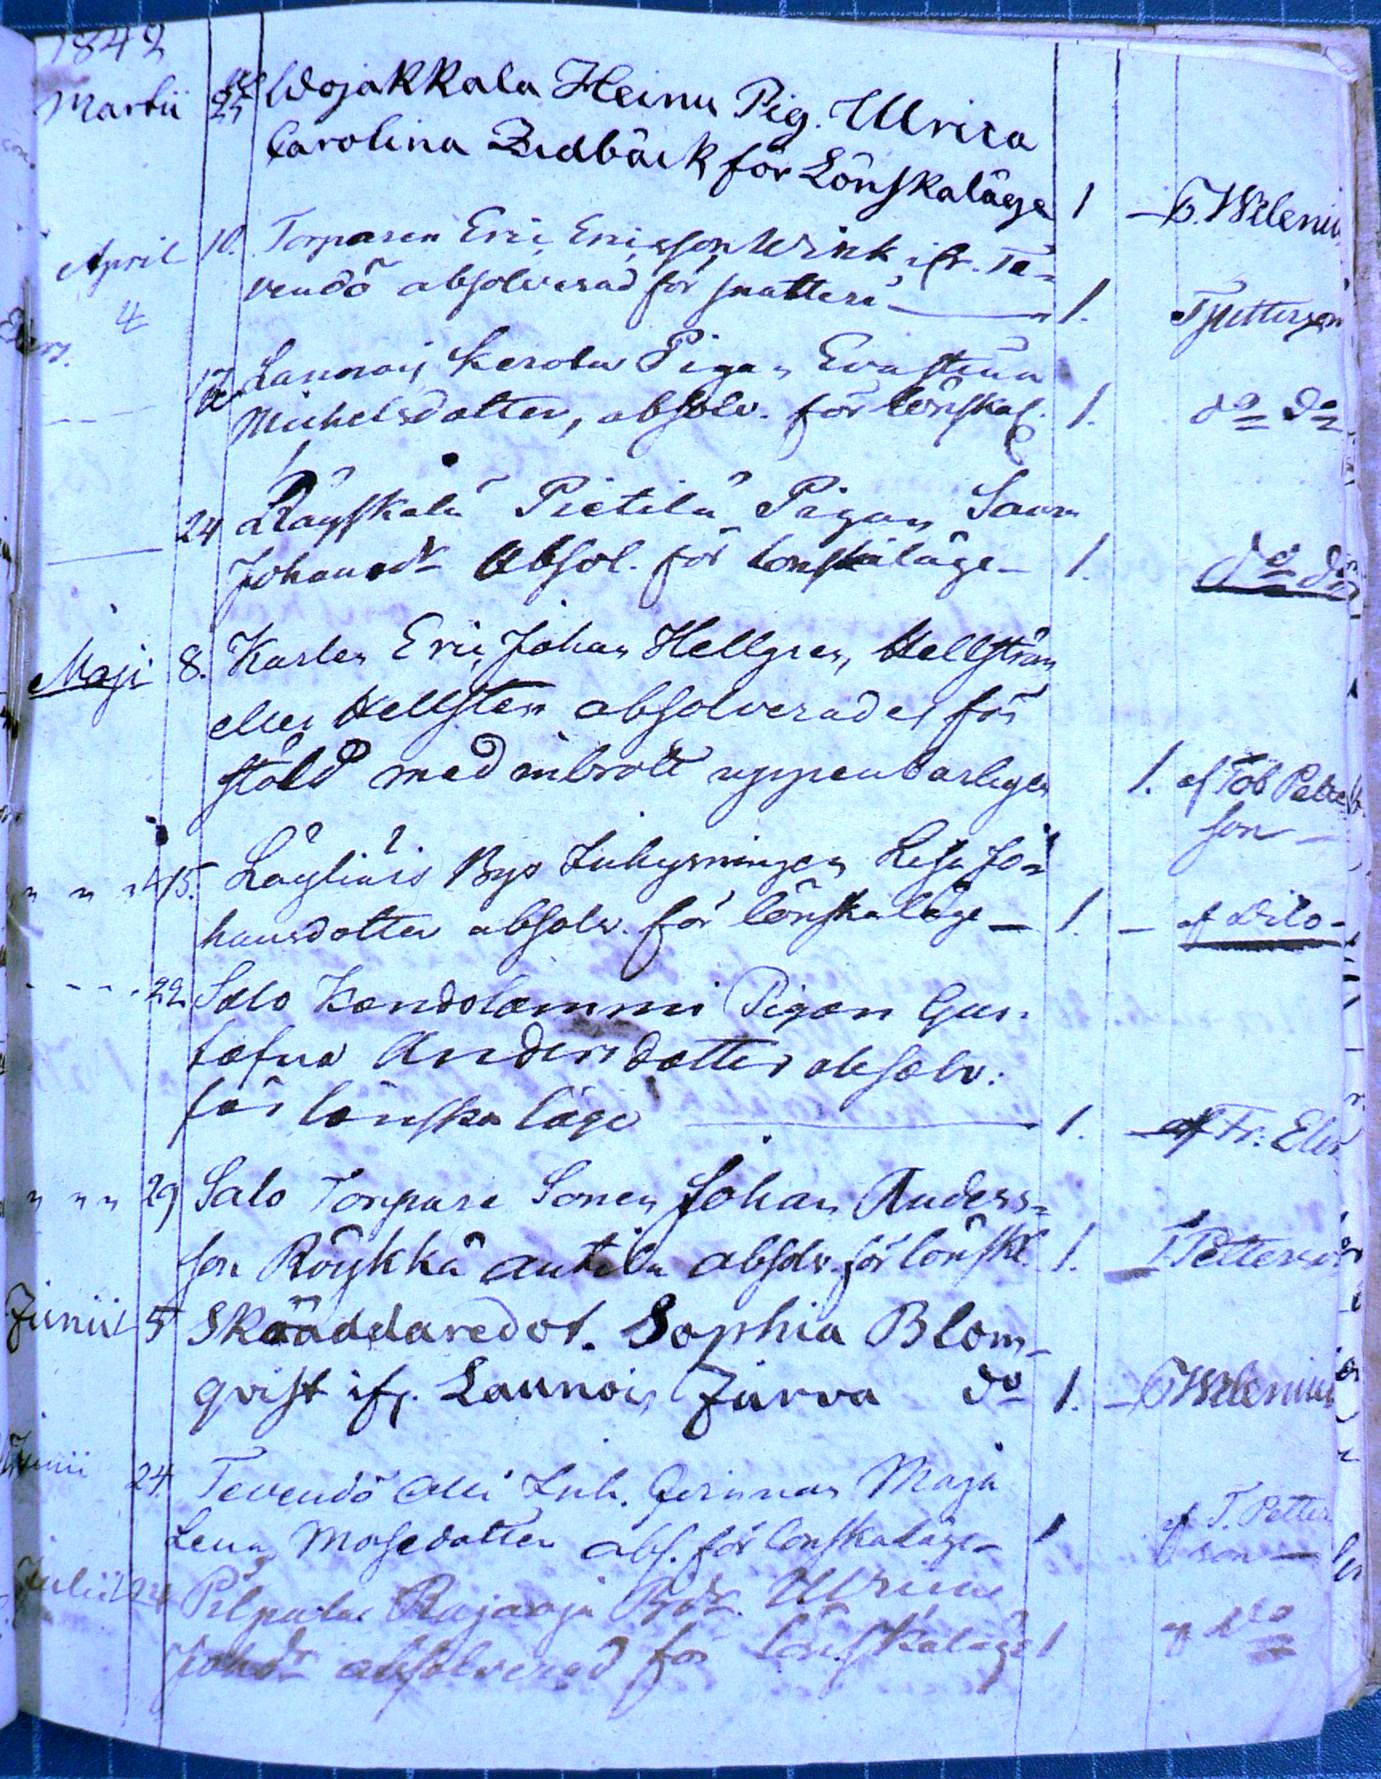 1842
Martii 25 Wojakkala Heinu Pig. Ulrica
Carolina Zidbäck för Lönskaläge 1 — C. Weleniu
April 10. Torparen Eric Ericsson Wink ifr. Te-
vendö absolverad för snatteri — 1. T Petterson
4
17 Launois Kerola Pigan Eva Stina
Michelsdotter, absolv. för lönskal. 1. do do
24 Räyskälä Pietilä Pigan
Johansdr Absol. för lönskaläge — 1. do do
Maji 8. Karlen Eric Johan Hellgren, Hellström
eller Hellsten absolverades för
stöld med inbrott uppenbarligen 1. af Tob Petter
son —
" " " 15. Läyliäis Bys Inhysningen Lisa Jo-
hansdotter absolv. för lönskaläge — 1. — af dito —
- - - 22 Salo Kandolammi Pigan Gus-
tafva Andersdotter absolv.
för lönska läge — 1. — af Fr. Elg
" " " 29 Salo Torpare Sonen Johan Anders-
son Röykkä Antila absolv. för lönskl. 1. — T Petterson
Junii 5 Skäddaredot. Sophia Blom-
qvist ifr. Launois Jurva do 1. — C Welenius
Junii 24. Tevendö Ali Inh. Qvinnan Maja
Lena Mosedotter abs. för lönskaläge — 1 af T. Petter
son —
Julii Pilpala Rajaoja
Johdr absolverad för lönskaläge 1 af dito